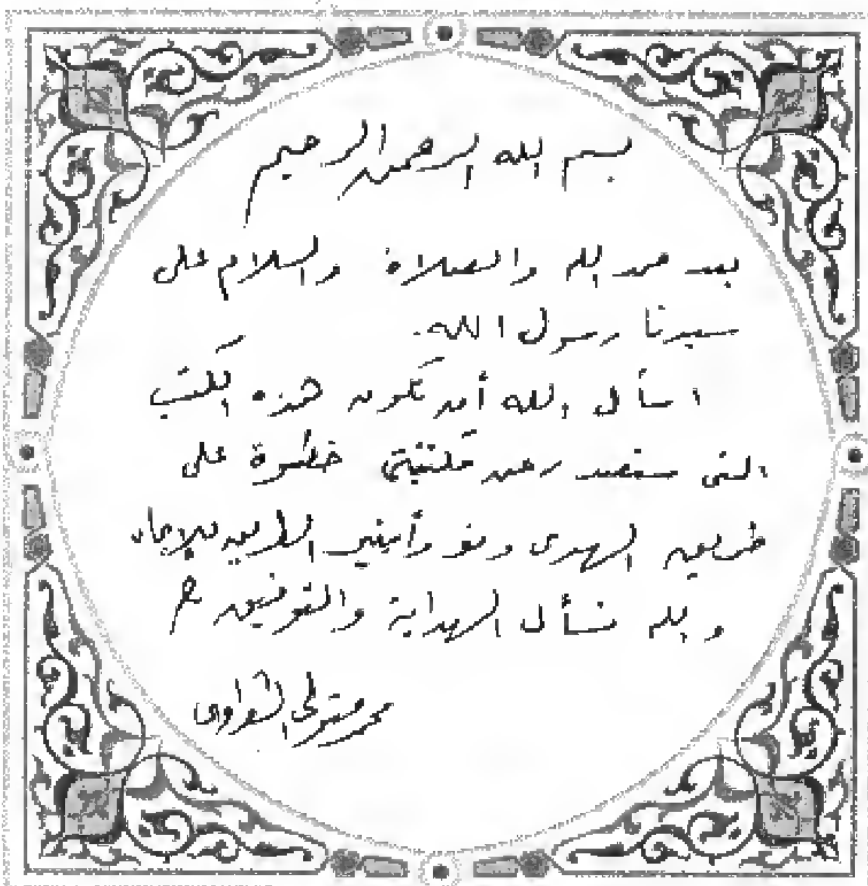 بسم الله الرحمن الرحيم
بعد حمد الله والصلاة والسلام على
سيدنا رسول الله.
اسأل الله أن تكون هذه الكتب
التى ستصدر عن مكتبتى خطوة على
طريق الهدى ونورأينير الطريق للإيمان
والله نسأل الهداية والتوفيق
محمد متولى الشعراوى